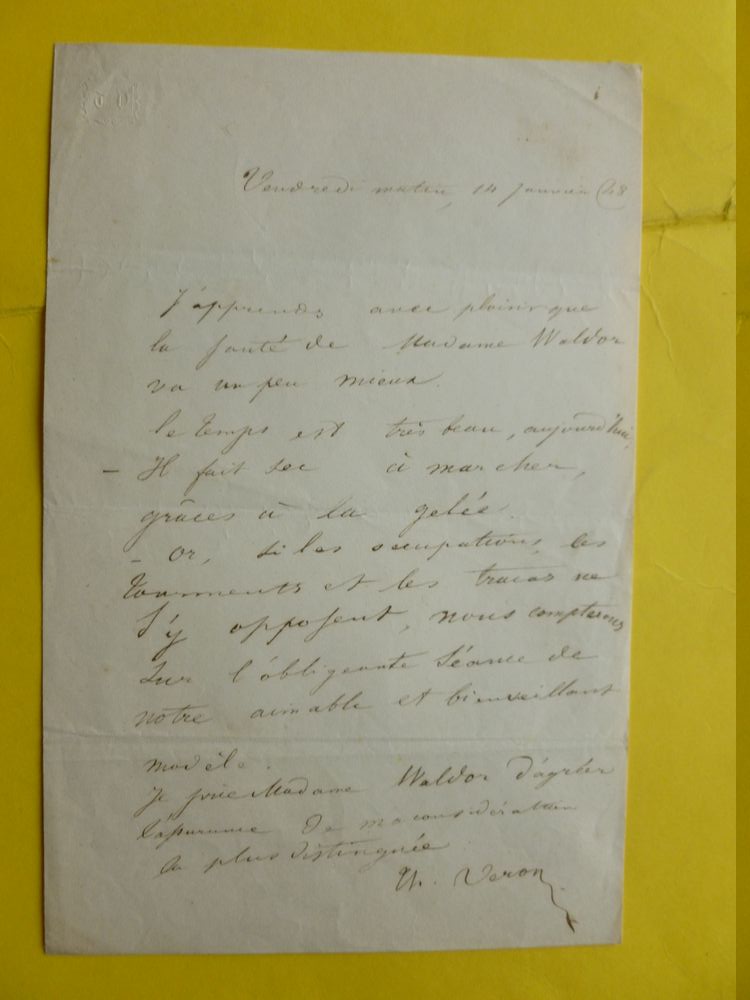 T V
Vendredi matin, 14 Janvier (48
J'apprends avec plaisir que
la santé de Madame Waldor
va un peu mieux.
le temps est très beau, aujourd'hui,
- Il fait sec à marcher,
grâces à la gelée.
- or, si les occupations, les
tourments et les tracas ne
s'y opposent, nous compterons
sur l'obligeante séance de
notre aimable et bienveillant
modèle.
Je prie Madame Waldor d'agréer
l'assurance de ma considération
la plus distinguée
Th. Veron